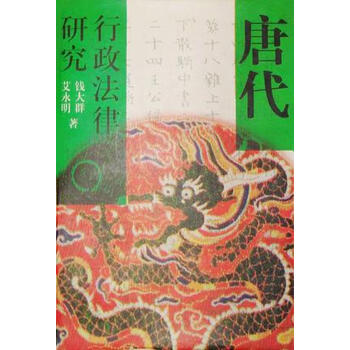 唐代
行政法律
研究
钱大群
艾永明 著
第十八條上十
下散騎中書
二十四王公